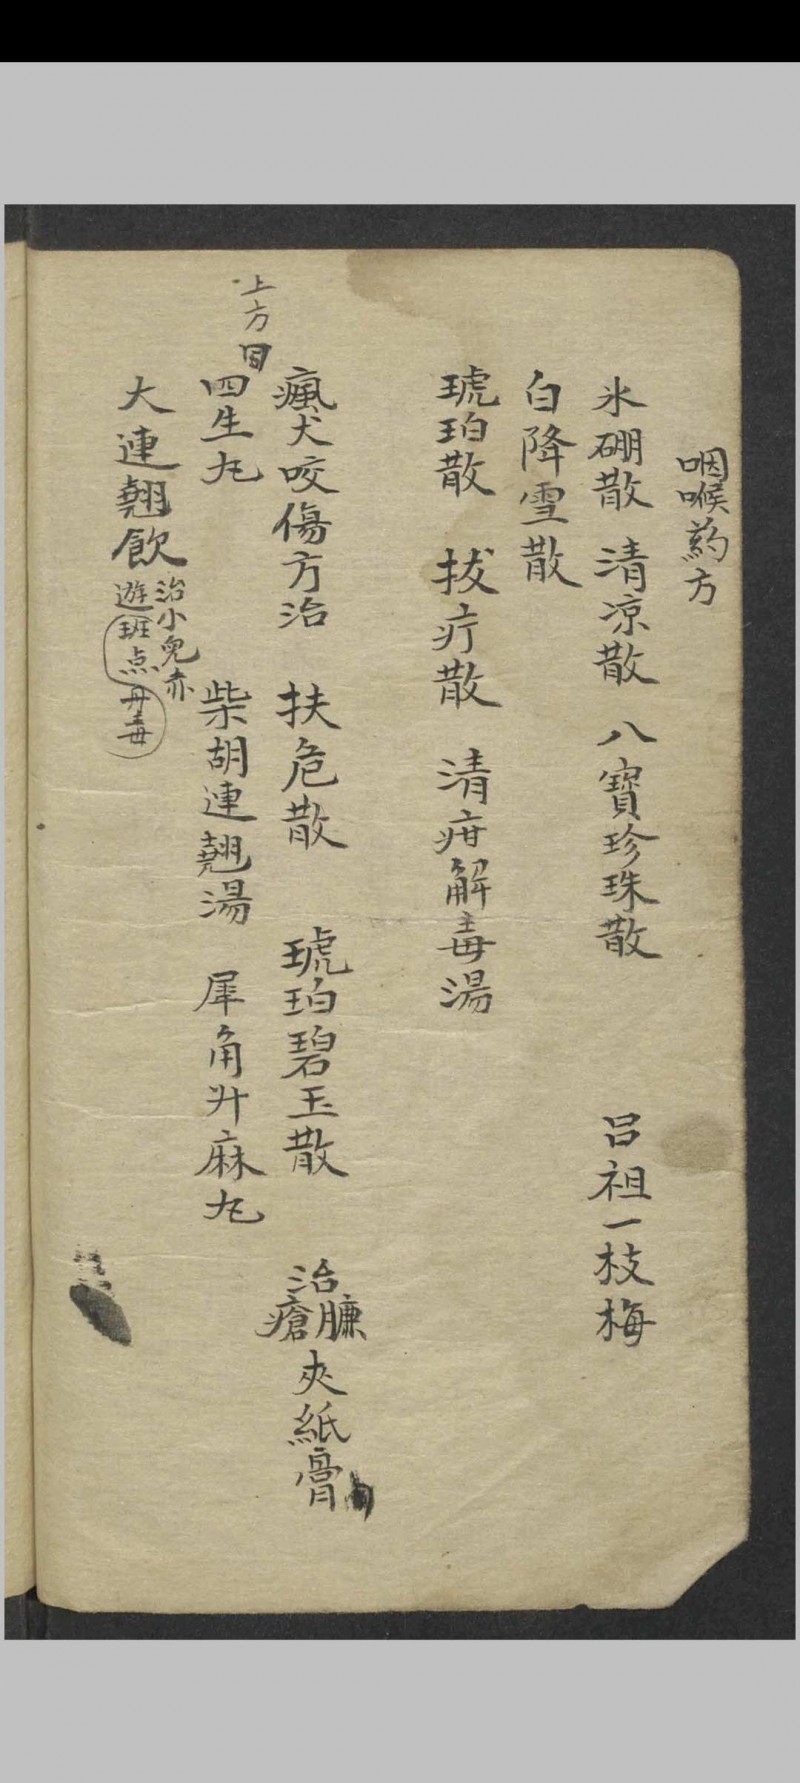 咽喉葯方
氷硼散 清凉散 八寶珍珠散 吕祖一枝梅
白降雪散
琥珀散 拔疔散 清疳解毒湯
瘋犬咬傷方治 扶危散 琥珀碧玉散 治臁瘡夾紙膏
上方同
四生丸 柴胡連翹湯 犀角升麻丸
大連翹飲 治小兒赤遊班点丹毒